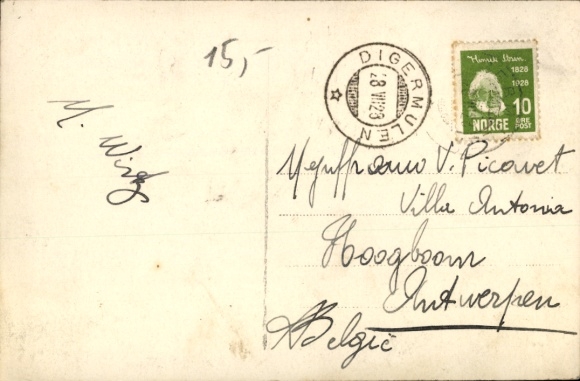 15,-
DIGERMULEN
28 VII 28
Henrik Ibsen
1828
1928
10
ØRE
NORGE
POST
Mejuffrouw V. Picavet
Villa Antonia
Hoogboom
Antwerpen
België
M.